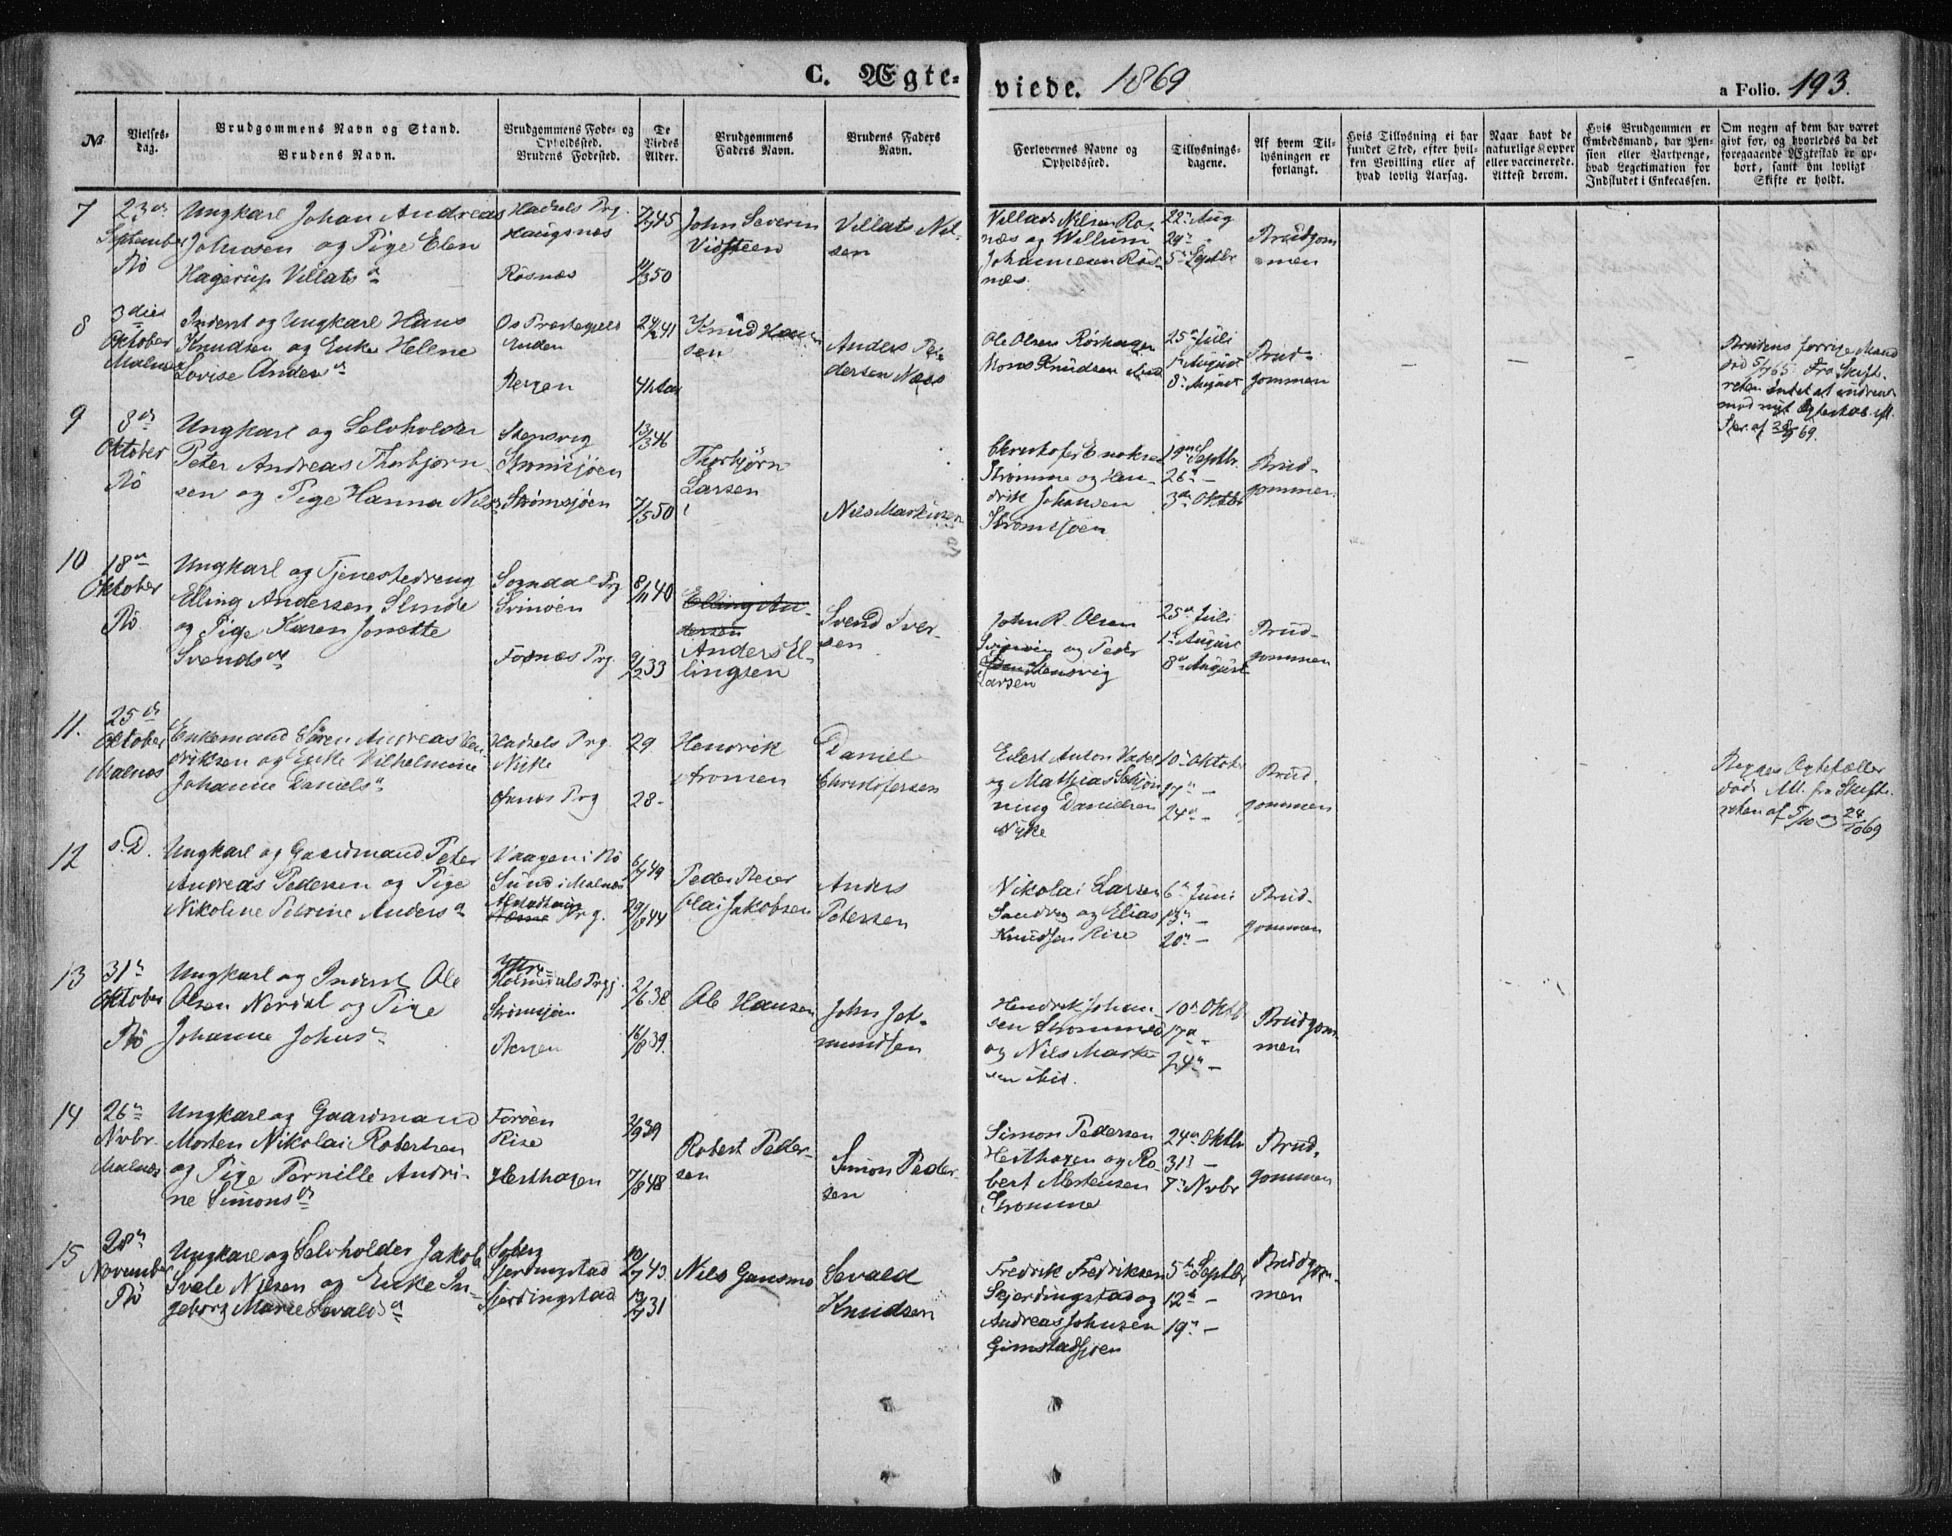 C. Ægte-
viede. 1869
a Folio. 193.
No
Vielses-
dag.
Brudgommens Navn og Stand.
Brudens Navn.
Brudgommens Føde- og
Opholdssted.
Brudens Fødested.
De
Viedes
Alder.
Brudgommens
Faders Navn.
Brudens Faders
Navn.
Forlovernes Navne og
Opholdssted.
Tillysnings-
dagene.
Af hvem Til-
lysningen er
forlangt.
Hvis Tillysning ei har
fundet Sted, efter hvil-
ken Bevilling eller af
hvad lovlig Aarsag.
Naar havt de
naturlige Kopper
eller vaccinerede.
Attest derom.
Hvis Brudgommen er
Embedsmand, har Pen-
sion eller Vartpenge,
hvad Legetimation for
Indskudet i Enkecassen.
Om nogen af dem har været
givt før, og hvorledes da det
foregaaende Ægteskab er op-
hørt, samt om lovligt
Skifte er holdt.
7
23de
September
Bø
Ungkarl Johan Andreas
Johnsen og Pige Elen
Hagerup Villats d
Hadsels Prg.
Haugsnæs
Røsnæs
7/7 45
11/3 50
John Severin
Vidsteen
Villats Nil-
sen
Villads Nilsen Rø-
næs og Willum
Johannesen Røs-
næs.
22 Aug
29
5 Septbr
Brudgom
men
8
3die
Oktober
Malnæs
Inderst og Ungkarl Hans
Knudsen og Enke Helene
Lovise Anders d
Os Præstegjeld
Bergen
24/2 41
41 Aar
Knud Han-
sen
Anders Pe-
dersen Næss
Ole Olsen Rørhagen
Mons Knudsen ibid
25 Juli
1 August
8 August
Brud-
gommen
Brudens forrige Mand
død 5/4 65. Fra Skift-
retten Intet at indvende
mod nyt Ægteskab ifl.
Skr. af 28/9 69.
9
8de
Oktober
Bø
Ungkarl og Selvholder
Peter Andreas Thorbjørn-
sen og Pige Hanna Nils d
Steensvig
Strømsjøen
Strømsjøen
13/3 46
7/5 50
Thorbjørn
Larsen
Nils Markusen
Christofer Enoksen
Strømme og Hen-
drik Johansen
Strømsjøen
19 Septbr.
26 -
3 Oktbr
Brud-
gommen
10
18de
Oktober
Bø
Ungkarl og Tjenestedreng
Elling Andersen Slinde
og Pige Karen Jonette
Svends d
Sogndal Prg
Svinøen
Fosnæs Prg.
8/11 40
9/2 33
Elling An-
dersen
Anders El-
lingsen
Svend Iver-
sen
John R. Olsen
Svinøen og Peder
Steensvig
Larsen
25 Juli
1 August
8 August
Brud-
gommen
11.
25de
Oktober
Malnæs
Enkemand Søren Andreas Hen
driksen og Enke Vilhelmine
Johanne Daniels d
Hadsels Prg.
Nyke
Øxnæs Prg
29
28 -
Hendrik
Aronsen
Daniel
Christofersen
Edert Anton
og Mathias Schjøn
ning Danielsen
Nyke
10 Oktober
17 -
24 -
Brud-
gommen
Begges Ægtefæller
døde. Att. fra Skifte-
retten af 5/10 og 24/10 69
12
s. D.
Ungkarl og Gaardmand Peter
Andreas Pedersen og Pige
Nikoline Petrine Anders d
Vaagen i Bø
Sund i Malnæs
Prg.
6/7 49
29/8 44
Peder Reier
Olai Jakobsen
Anders
Petersen
Nikolai Larsen
Sandvig og Elias
Knudsen Rise
6 Juni
13 -
20 -
Brud-
gommen
13
31te
Oktober
Bø
Ungkarl og Inderst Ole
Olsen Nordal og Pige
Johanne Johns d
Ytre-
Holmedals Prgj.
Strømsjøen
Bergen
2/6 38
16/8 39.
Ole Hansen
John Jet-
mundsen
Hendrik Johan-
sen Strømmesø
og Nils Marku
sen ibid.
10 Oktb
17 -
24 -
Brudgom
men
14
26de
Nvbr.
Malnæs
Ungkarl og Gaardmand
Morten Nikolai Robertsen
og Pige Pernille Andri-
ne Simons d
Forøen
Rise
Hesthagen
2/9 39
7/8 48
Robert Peder-
sen
Simon Peder-
sen
Simon Pedersen
Hesthagen og Ro-
bert Mortensen
Strømme
24 Oktbr
31 -
7 Nvbr
Brud-
gommen
15
28de
November
Bø
Ungkarl og Selvholder Jakob
Svale Nilsen og Enke In-
geborg Marie Sevalds d
Søberg
Skjerdingstad
Skjerdingstad
10/2 43
13/7 31
Nils Gansmo
Sevald
Knudsen
Fredrik Fredriksen
Skjerdingstad og
Andreas Johnsen
Grimstadsjøen
5 Septbr
12 -
19 -
Brudgom-
men